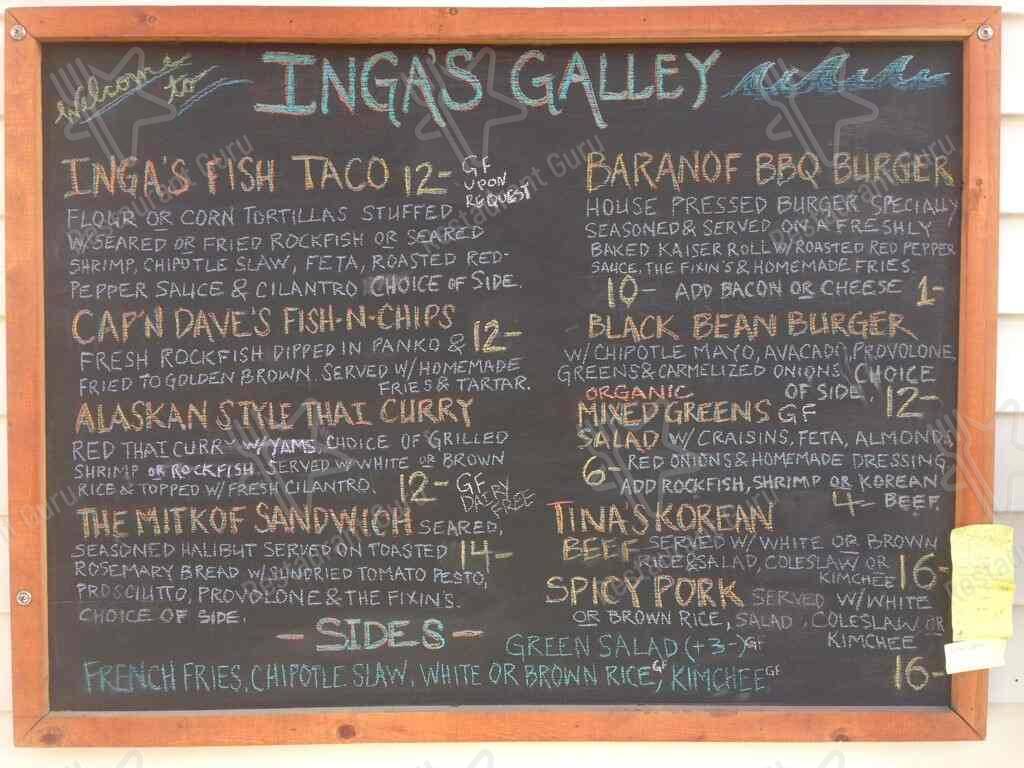 Welcome to
INGA'S GALLEY
INGA'S FISH TACO 12-
GF UPON REQUEST
FLOUR OR CORN TORTILLAS STUFFED
W/SEARED OR FRIED ROCKFISH OR SEARED
SHRIMP, CHIPOTLE SLAW, FETA, ROASTED RED-
PEPPER SAUCE & CILANTRO CHOICE OF SIDE.
CAP'N DAVE'S FISH-N-CHIPS 12-
FRESH ROCKFISH DIPPED IN PANKO &
FRIED TO GOLDEN BROWN. SERVED W/HOMEMADE
FRIES & TARTAR.
ALASKAN STYLE THAI CURRY
RED THAI CURRY W/YAMS. CHOICE OF GRILLED
SHRIMP OR ROCKFISH SERVED W/WHITE OR BROWN
RICE & TOPPED W/FRESH CILANTRO. 12- GF
DAIRY FREE
THE MITKOF SANDWICH SEARED,
SEASONED HALIBUT SERVED ON TOASTED 14-
ROSEMARY BREAD W/SUNDRIED TOMATO PESTO,
PROSCIUTTO, PROVOLONE & THE FIXIN'S.
CHOICE OF SIDE.
BARANOF BBQ BURGER
HOUSE PRESSED BURGER SPECIALLY
SEASONED & SERVED ON A FRESHLY
BAKED KAISER ROLL W/ROASTED RED PEPPER
SAUCE, THE FIXIN'S & HOMEMADE FRIES.
10- ADD BACON OR CHEESE 1-
BLACK BEAN BURGER
W/CHIPOTLE MAYO, AVACADO, PROVOLONE,
GREENS & CARMELIZED ONIONS. CHOICE
OF SIDE. 12-
ORGANIC
MIXED GREENS GF
SALAD W/CRAISINS, FETA, ALMONDS
6- RED ONIONS & HOMEMADE DRESSING
ADD ROCKFISH, SHRIMP OR KOREAN
4- BEEF.
TINA'S KOREAN
BEEF SERVED W/WHITE OR BROWN
RICE & SALAD, COLESLAW OR
KIMCHEE 16-
SPICY PORK SERVED W/WHITE
OR BROWN RICE, SALAD, COLESLAW OR
KIMCHEE
16-
- SIDES -
GREEN SALAD (+3-) GF
FRENCH FRIES, CHIPOTLE SLAW, WHITE OR BROWN RICE GF, KIMCHEE GF
Restaurant Guru